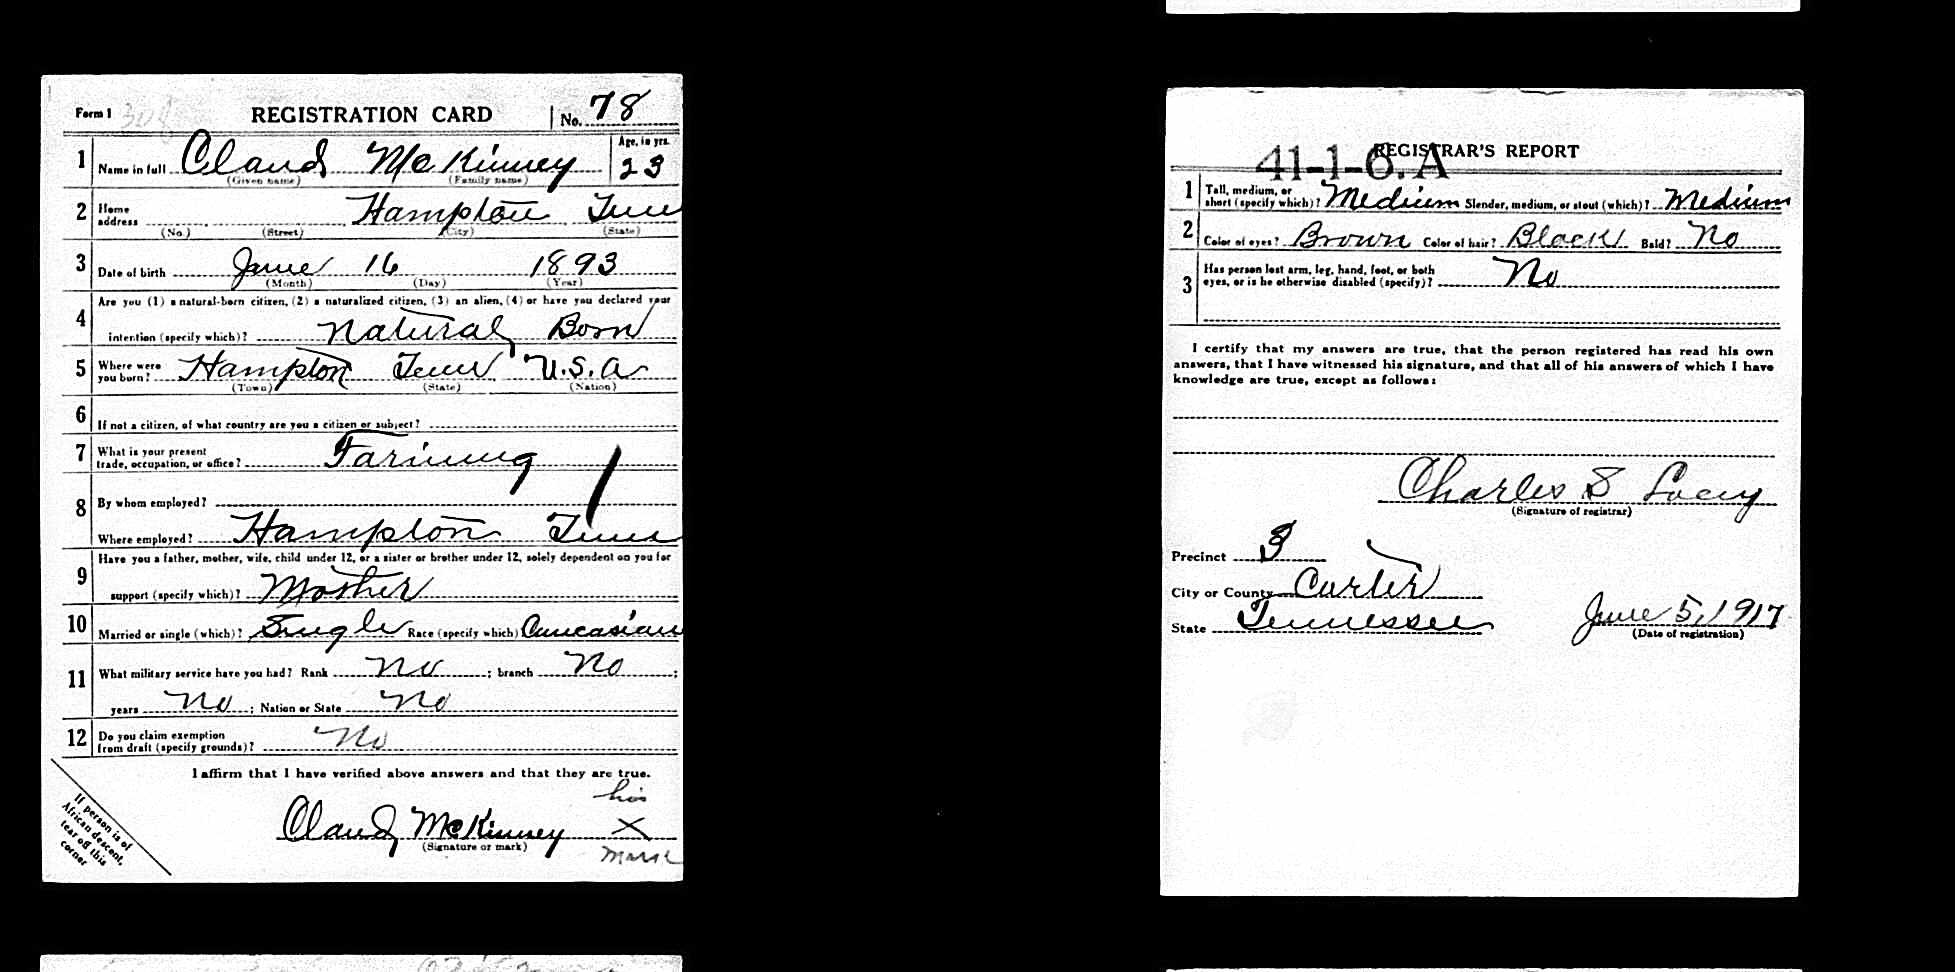 Form 1
REGISTRATION CARD
No. 78
1 Name in full Claud McKinney
(Given name) (Family name)
Age, in yrs.
23
2 Home address Hampton Tenn
(No.) (Street) (City) (State)
3 Date of birth June 16 1893
(Month) (Day) (Year)
4 Are you (1) a natural-born citizen, (2) a naturalized citizen, (3) an alien, (4) or have you declared your
intention (specify which)? Natural Born
5 Where were you born? Hampton Tenn U.S.A
(Town) (State) (Nation)
6 If not a citizen, of what country are you a citizen or subject?
7 What is your present
trade, occupation, or office? Farming
8 By whom employed?
Where employed? Hampton Tenn
9 Have you a father, mother, wife, child under 12, or a sister or brother under 12, solely dependent on you for
support (specify which)? Mother
10 Married or single (which)? Single Race (specify which) Caucasian
11 What military service have you had? Rank No ; branch No ;
years No ; Nation or State No
12 Do you claim exemption
from draft (specify grounds)? No
I affirm that I have verified above answers and that they are true.
his
Claud McKinney X
(Signature or mark)
mark
If person is of
African descent,
tear off this
corner
REGISTRAR'S REPORT
41-1-6. A
1 Tall, medium, or
short (specify which)? Medium Slender, medium, or stout (which)? Medium
2 Color of eyes? Brown Color of hair? Black Bald? No
3 Has person lost arm, leg, hand, foot, or both
eyes, or is he otherwise disabled (specify)? No
I certify that my answers are true, that the person registered has read his own
answers, that I have witnessed his signature, and that all of his answers of which I have
knowledge are true, except as follows:
Charles S Lacey
(Signature of registrar)
Precinct 3
City or County Carter
State Tennessee
June 5, 1917
(Date of registration)